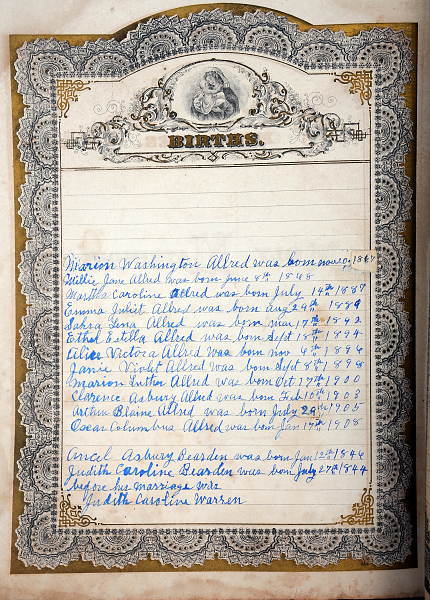 BIRTHS.
Marion Washington Allred was born nov 10, 1867
Millie Jane Allred was born june 8th 1868
Martha Caroline Allred was born July 14th 1887
Emma Juliet Allred was born aug 24th 1889
Sahra Lena Allred was born mar 17th 1892
Ethel Estella Allred was born Sept 18th 1894
Alice Victora Allred was born nov 4th 1896
Janie Violet Allred was born Sept 8th 1898
Marion Luther Allred was born Oct 17th 1900
Clarence Asbury Allred was born Feb 10th 1903
Arthur Blaine Allred was born July 29th 1905
Oscar Columbus Allred was born Jan 17th 1908
Ancel Asbury Bearden was born Jan 12th 1846
Judith Caroline Bearden was born July 27th 1844
before his marriage was
Judith Caroline Warren